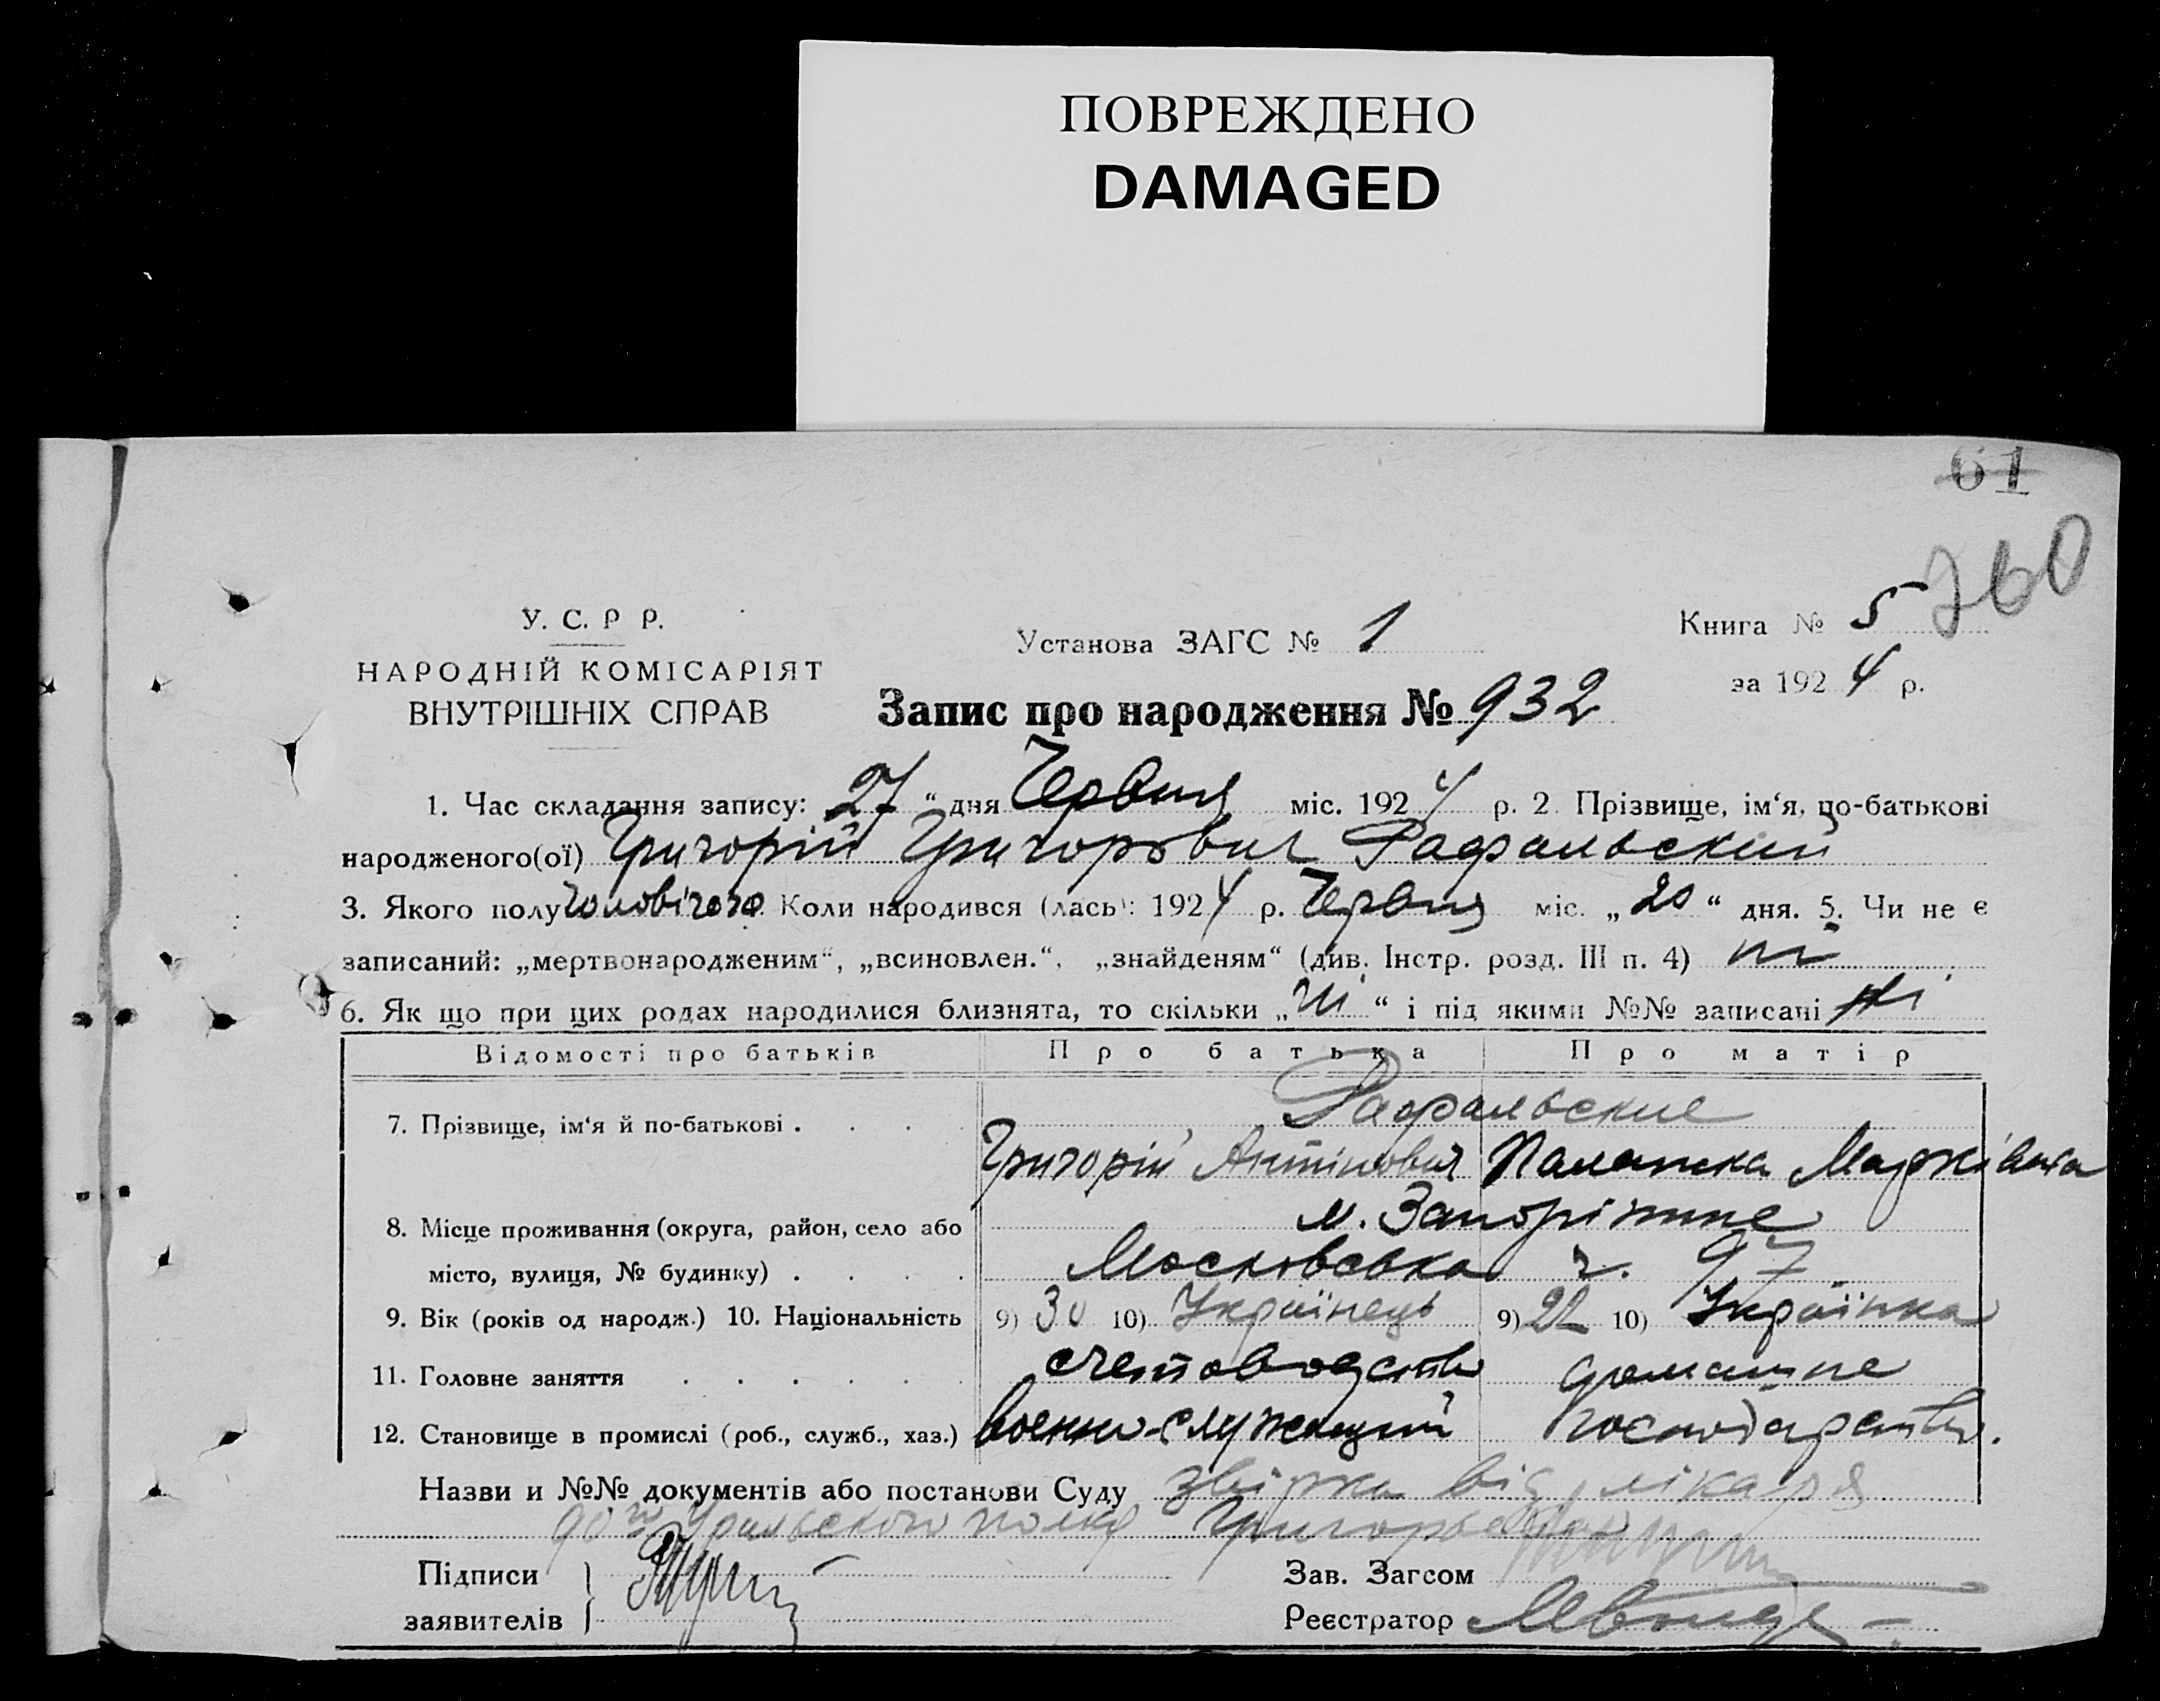 ПОВРЕЖДЕНО
DAMAGED
61
260
У. С. Р Р.
НАРОДНІЙ КОМІСАРІЯТ
ВНУТРІШНІХ СПРАВ
Установа ЗАГС № 1
Книга № 5
за 1924 р.
Запис про народження № 932
1. Час складання запису: 27 “ дня Червня міс. 1924 р. 2. Прізвище, ім‘я, по-батькові
народженого(ої) Григорій Григорович Рафальский
3. Якого полу чоловічого Коли народився (лась): 1924 р. Червня міс. „ 20 “ дня. 5. Чи не є
записаний: „мертвонародженим“, „всиновлен.“, „знайденям“ (див. Інстр. розд. III п. 4) ні
6. Як що при цих родах народилися близнята, то скільки „ ні “ і під якими №№ записані ні
Відомості про батьків Про батька Про матір
7. Прізвище, ім‘я й по-батькові . . . . Рафальские
Григорій Антінович Палажка Марківна
8. Місце проживання (округа, район, село або м. Запоріжжє
місто, вулиця, № будинку) . . . . Московська ч. 97
9. Вік (років од народж.) 10. Національність 9) 30 10) Українець 9) 22 10) Українка
11. Головне заняття . . . . . . счетоводство домашне
12. Становище в промислі (роб., служб., хаз.) военно-служащий господарство.
Назви и №№ документів або постанови Суду від лікаря
90го Уральского полку
Підписи
заявителів
Зав. Загсом
Реєстратор